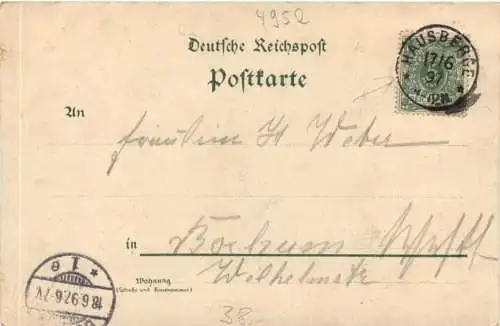 4952
Deutsche Reichspost
Postkarte
HAUSBERGE
17/6
97
An
Fräulein H Weber
in
Bochum
Wohnung
(Straße und Hausnummer)
Wilhelmstr
* 1 e
18.6.97.6-7V
38.-